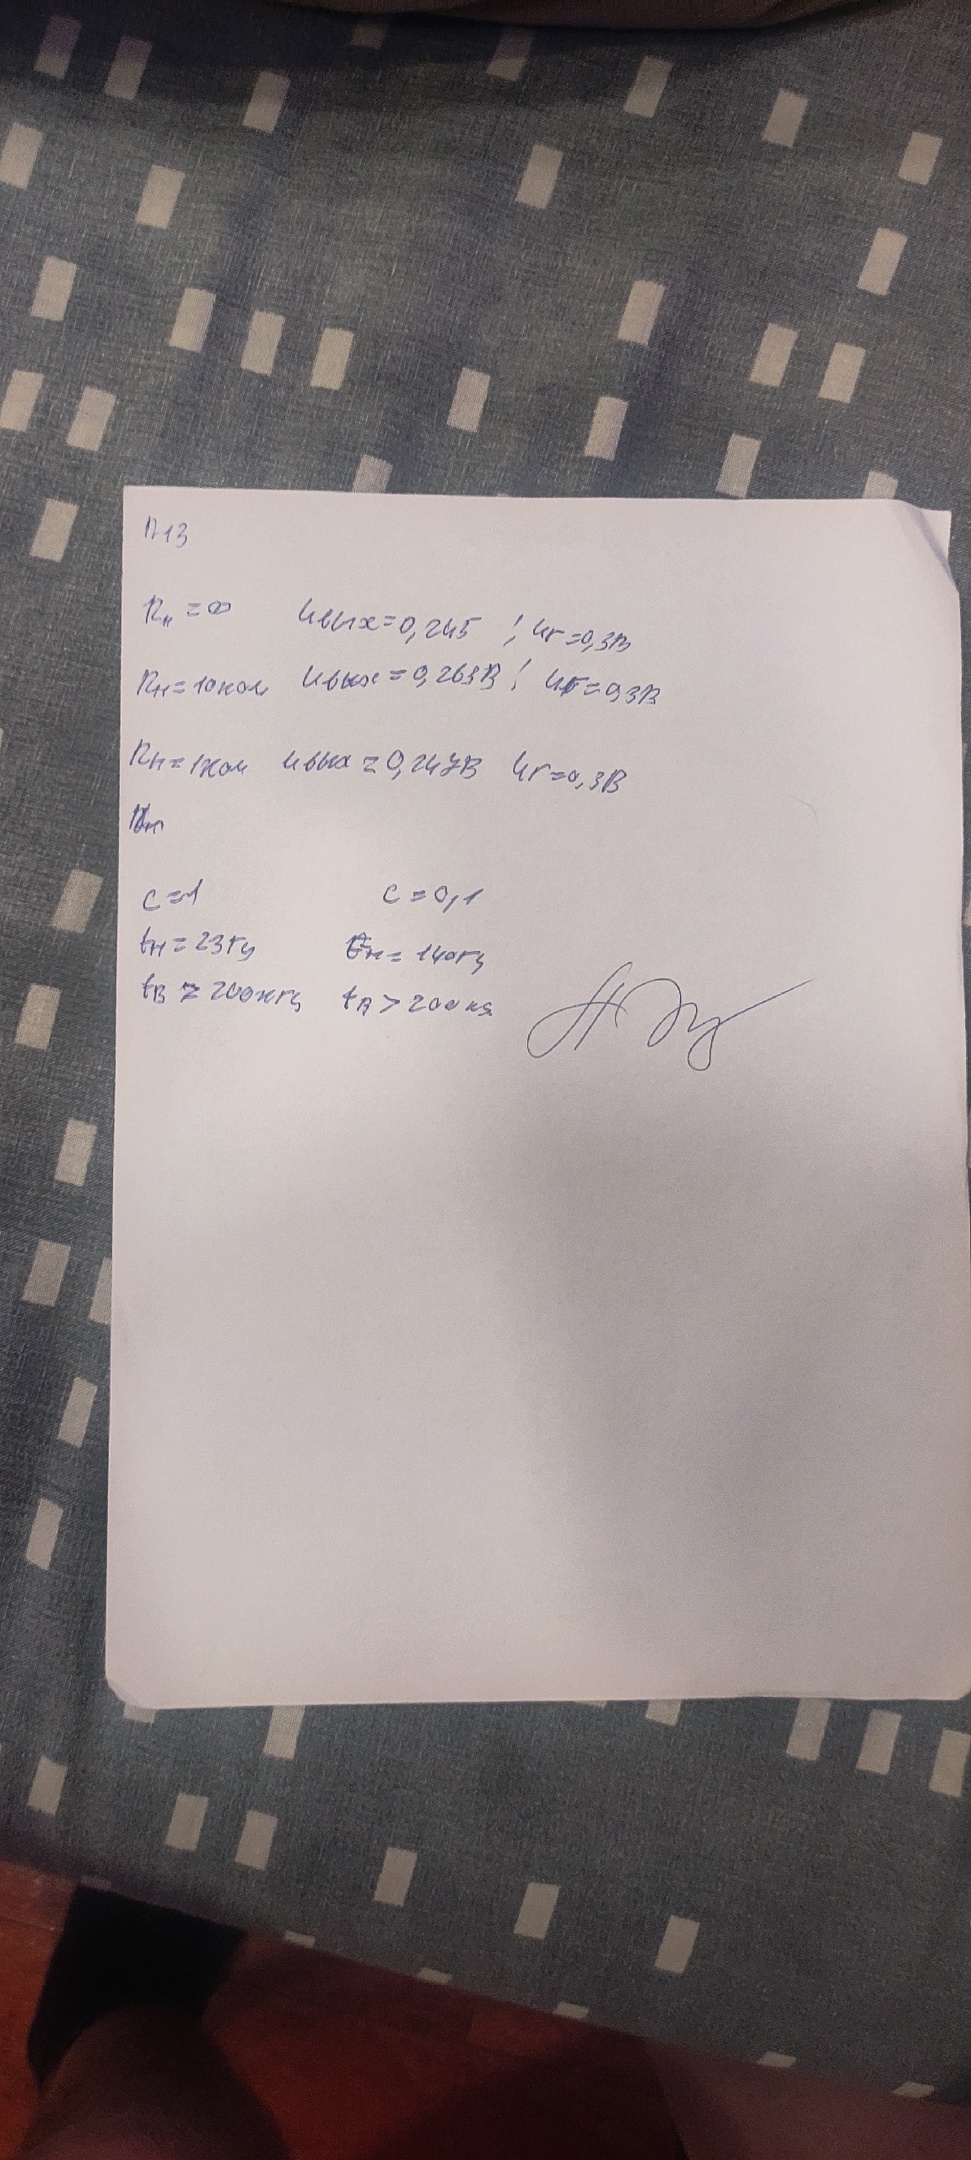 Л13
Rн = ∞ Uвых = 0,245 ; Uг = 0,3В
Rн = 10ком Uвых = 0,263В ; Uг = 0,3В
Rн = 1ком Uвых = 0,247В Uг = 0,3В
C = 1 C = 0,1
fн = 23гц fн = 140гц
fв = 200кгц fв > 200кг